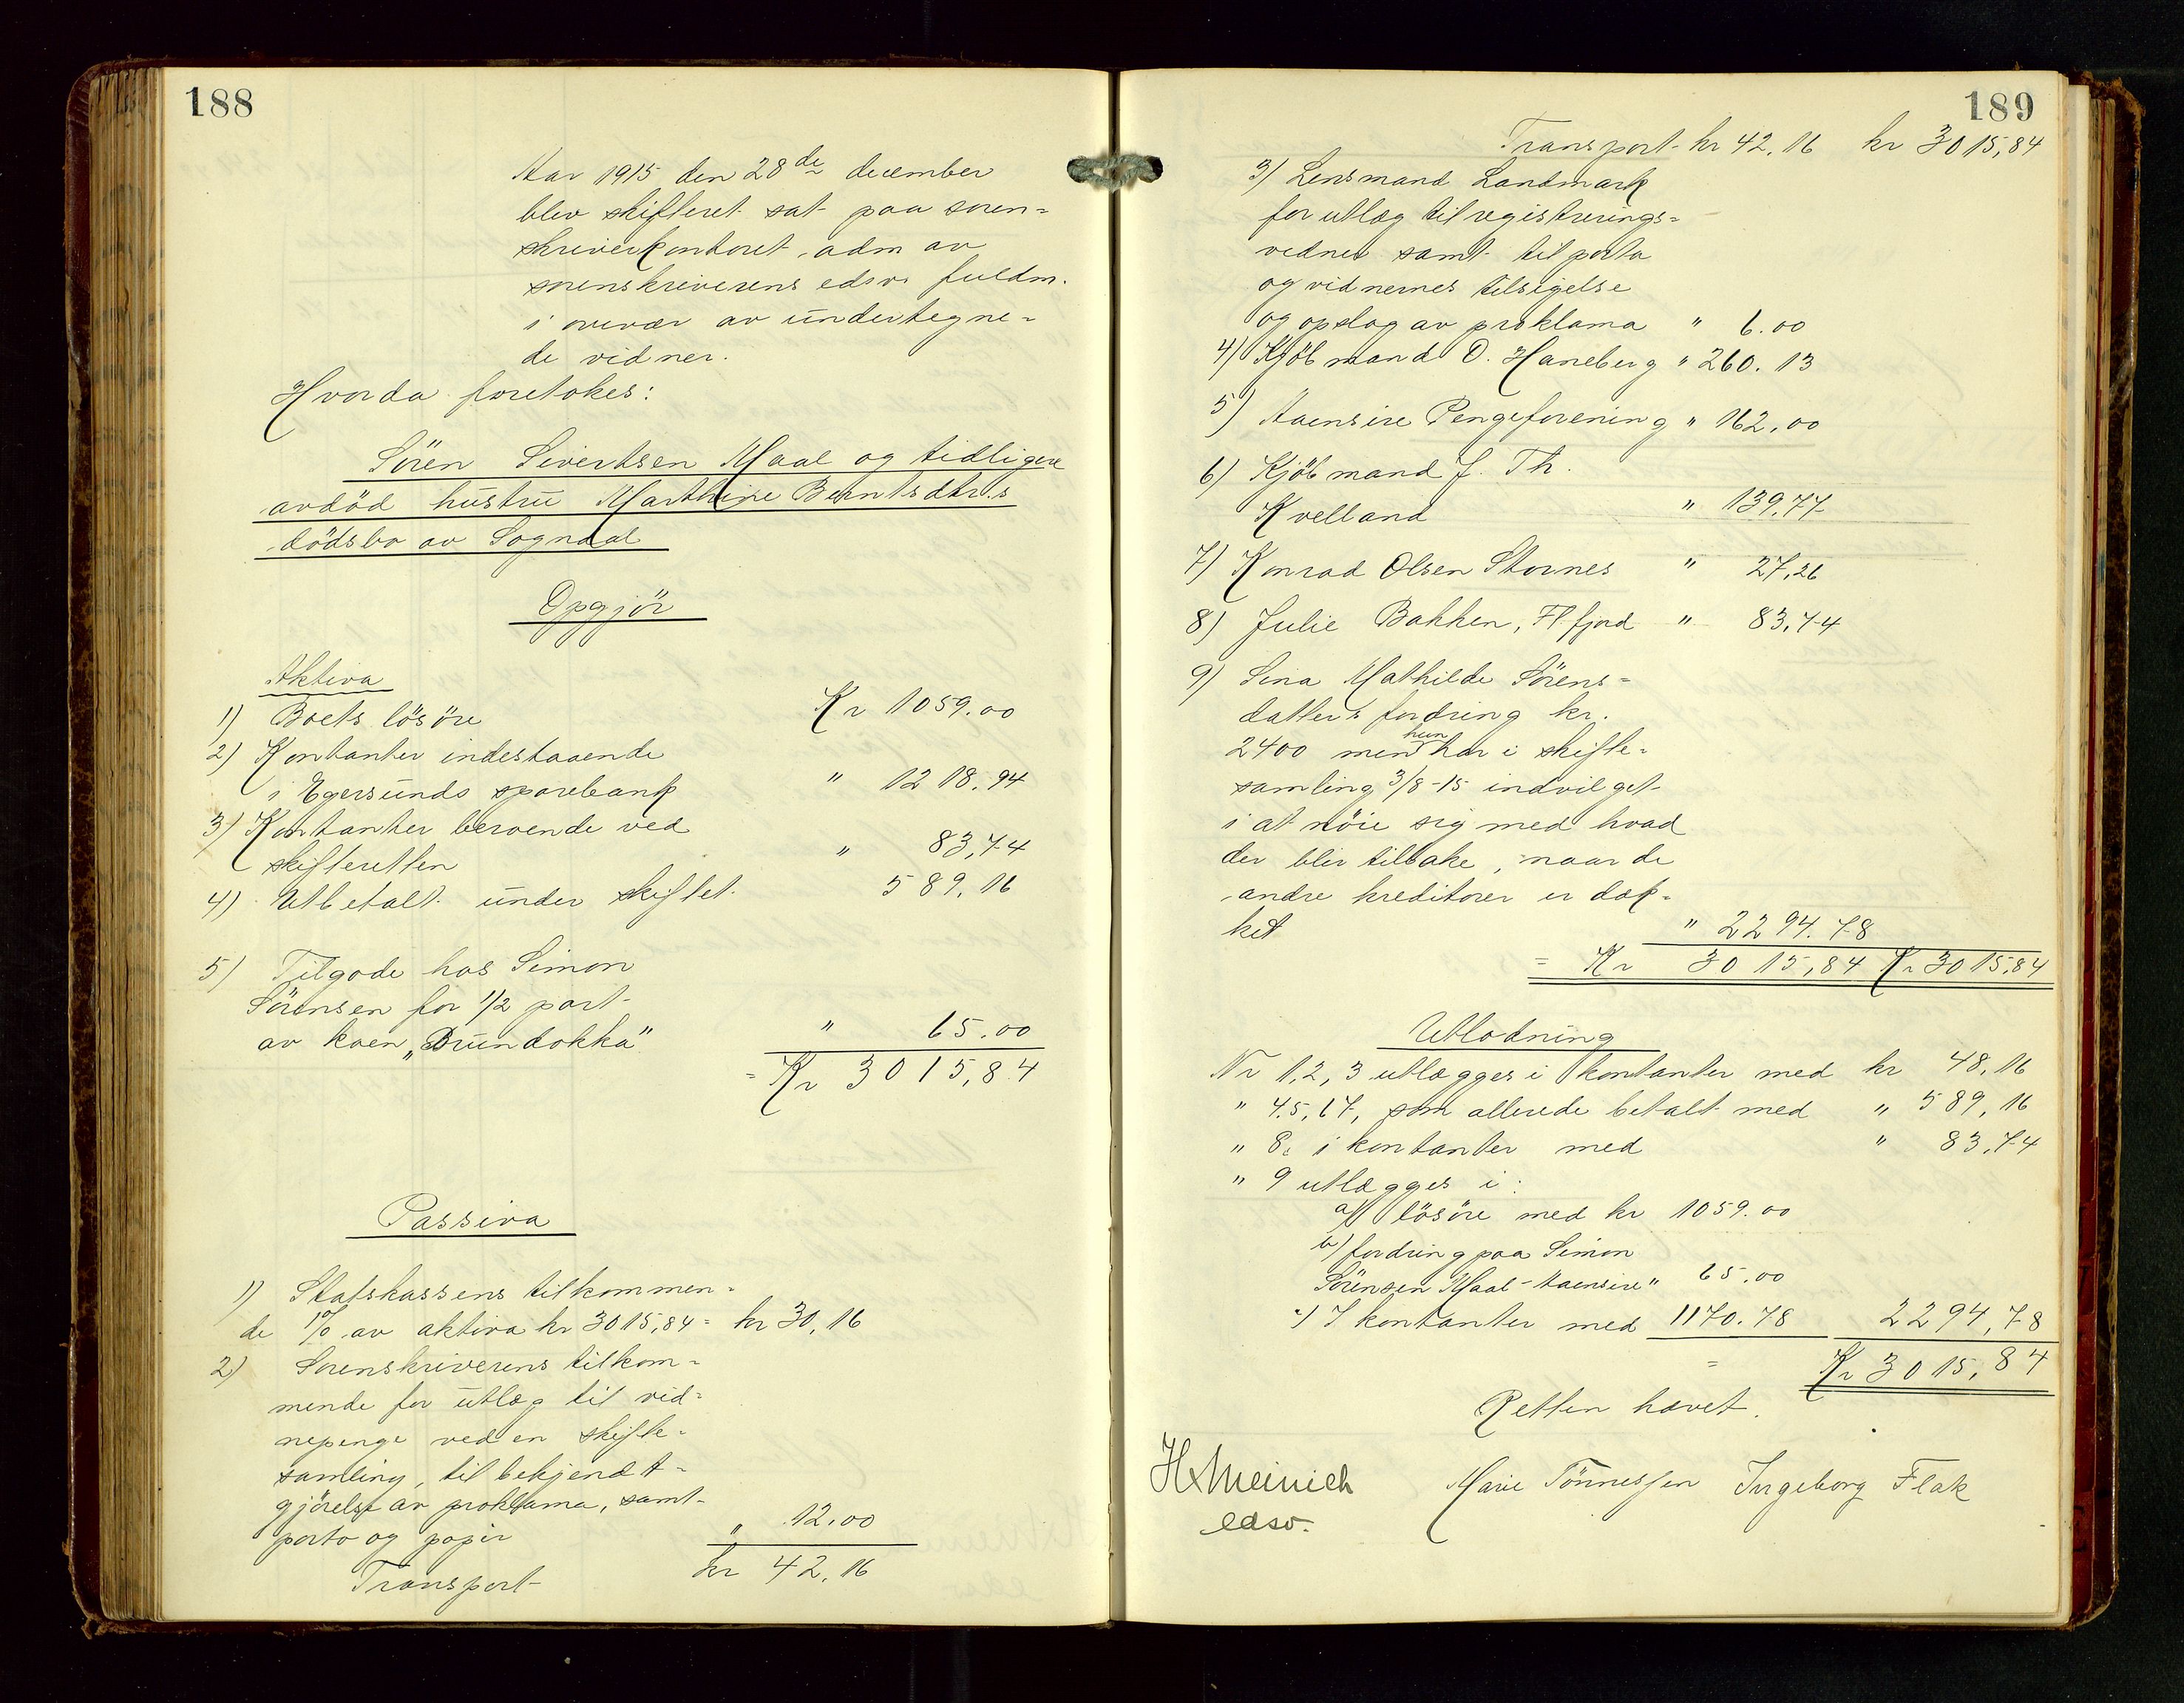 188
Aar 1915 den 28de december
blev skifteret sat paa soren=
skriverkontoret adm av
sorenskriverens edsv. fuldm.
i overvær av undertegne=
de vidner.
Hvorda foretokes:
Sören Sivertsen Maal og tidligere
avdöd hustru Marthine Berntsdtr.s
dödsbo av Sogndal
Opgjör
Aktiva
1) Boets lösöre Kr 1059.00
2) Kontanter indestaaende
i Egersunds sparebank " 1218.94
3) Kontanter beroende ved
skifteretten " 83,74
4) Utbetalt under skiftet 589,16
5) Tilgode hos Simon
Sörensen for 1/2 part
av koen „Brundokka" " 65.00
= Kr 3015,84
Passiva
1) Statskassens tilkommen=
de 1% av aktiva kr 3015,84 = kr 30,16
2) Sorenskriverens tilkom=
mende for utlæg til vid=
nepenge ved en skifte=
samling, til bekjendt=
gjörelse av proklama, samt
porto og papir " 12.00
Transport kr 42,16
189
Transport kr 42,16 kr 3015,84
3) Lensmand Landmark
for utlæg til registrerings=
vidner samt til porto
og vidnernes tilsigelse
og opslag av proklama " 6.00
4) Kjöbmand O. Haneberg " 260.13
5) Aaensire Pengeforening " 162,00
6) Kjöbmand J. Th.
Kvelland " 139,77
7) Konrad Olsen Stornes " 27,26
8) Julie Bakken, Fl.fjord " 83,74
9) Sina Mathilde Sörens=
datters fordring kr.
2400 men hun har i skifte=
samling 3/8-15 indvilget
i at nöie sig med hvad
der blir tilbake, naar de
andre kreditorer er dæk=
ket " 2294.78
= Kr 3015,84 Kr 3015,84
Utlodning
Nr 1,2,3 utlægges i kontanter med kr 48,16
" 4.5,67, som allerede betalt med " 589,16
" 8, i kontanter med " 83,74
" 9 utlægges i:
a) lösöre med kr 1059.00
b) fordring paa Simon
Sörensen Maal-Aaensire " 65.00
c) I kontanter med 1170.78 2294,78
= Kr 3015,84
Retten hævet.
H Meinich Marie Tönnessen Ingeborg Flak
edsv.